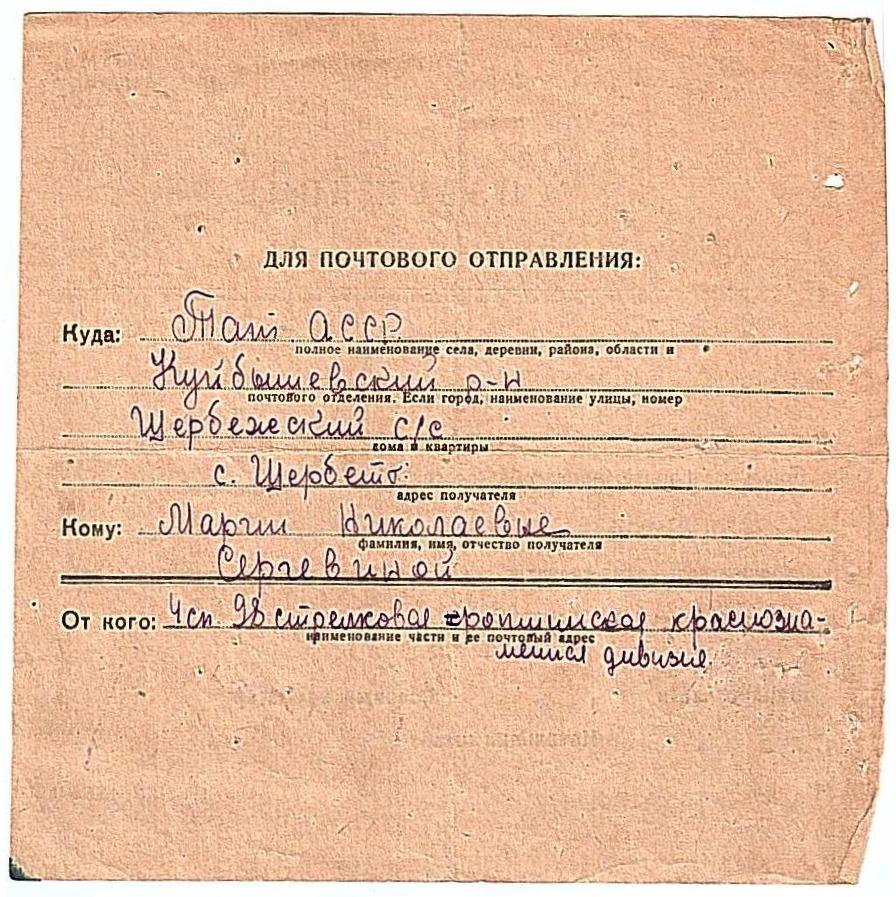 ДЛЯ ПОЧТОВОГО ОТПРАВЛЕНИЯ:
Куда: Тат АССР
полное наименование села, деревни, района, области и
Куйбышевский р-н
почтового отделения. Если город, наименование улицы, номер
Щербежеский с/с
дома и квартиры
с. Щербеть
адрес получателя
Кому: Марии Николаевые
фамилия, имя, отчество получателя
Сергевиной
От кого: 4 сп 98 стрелковая ропшинская краснозна-
наименование части и ее почтовый адрес
дивизия